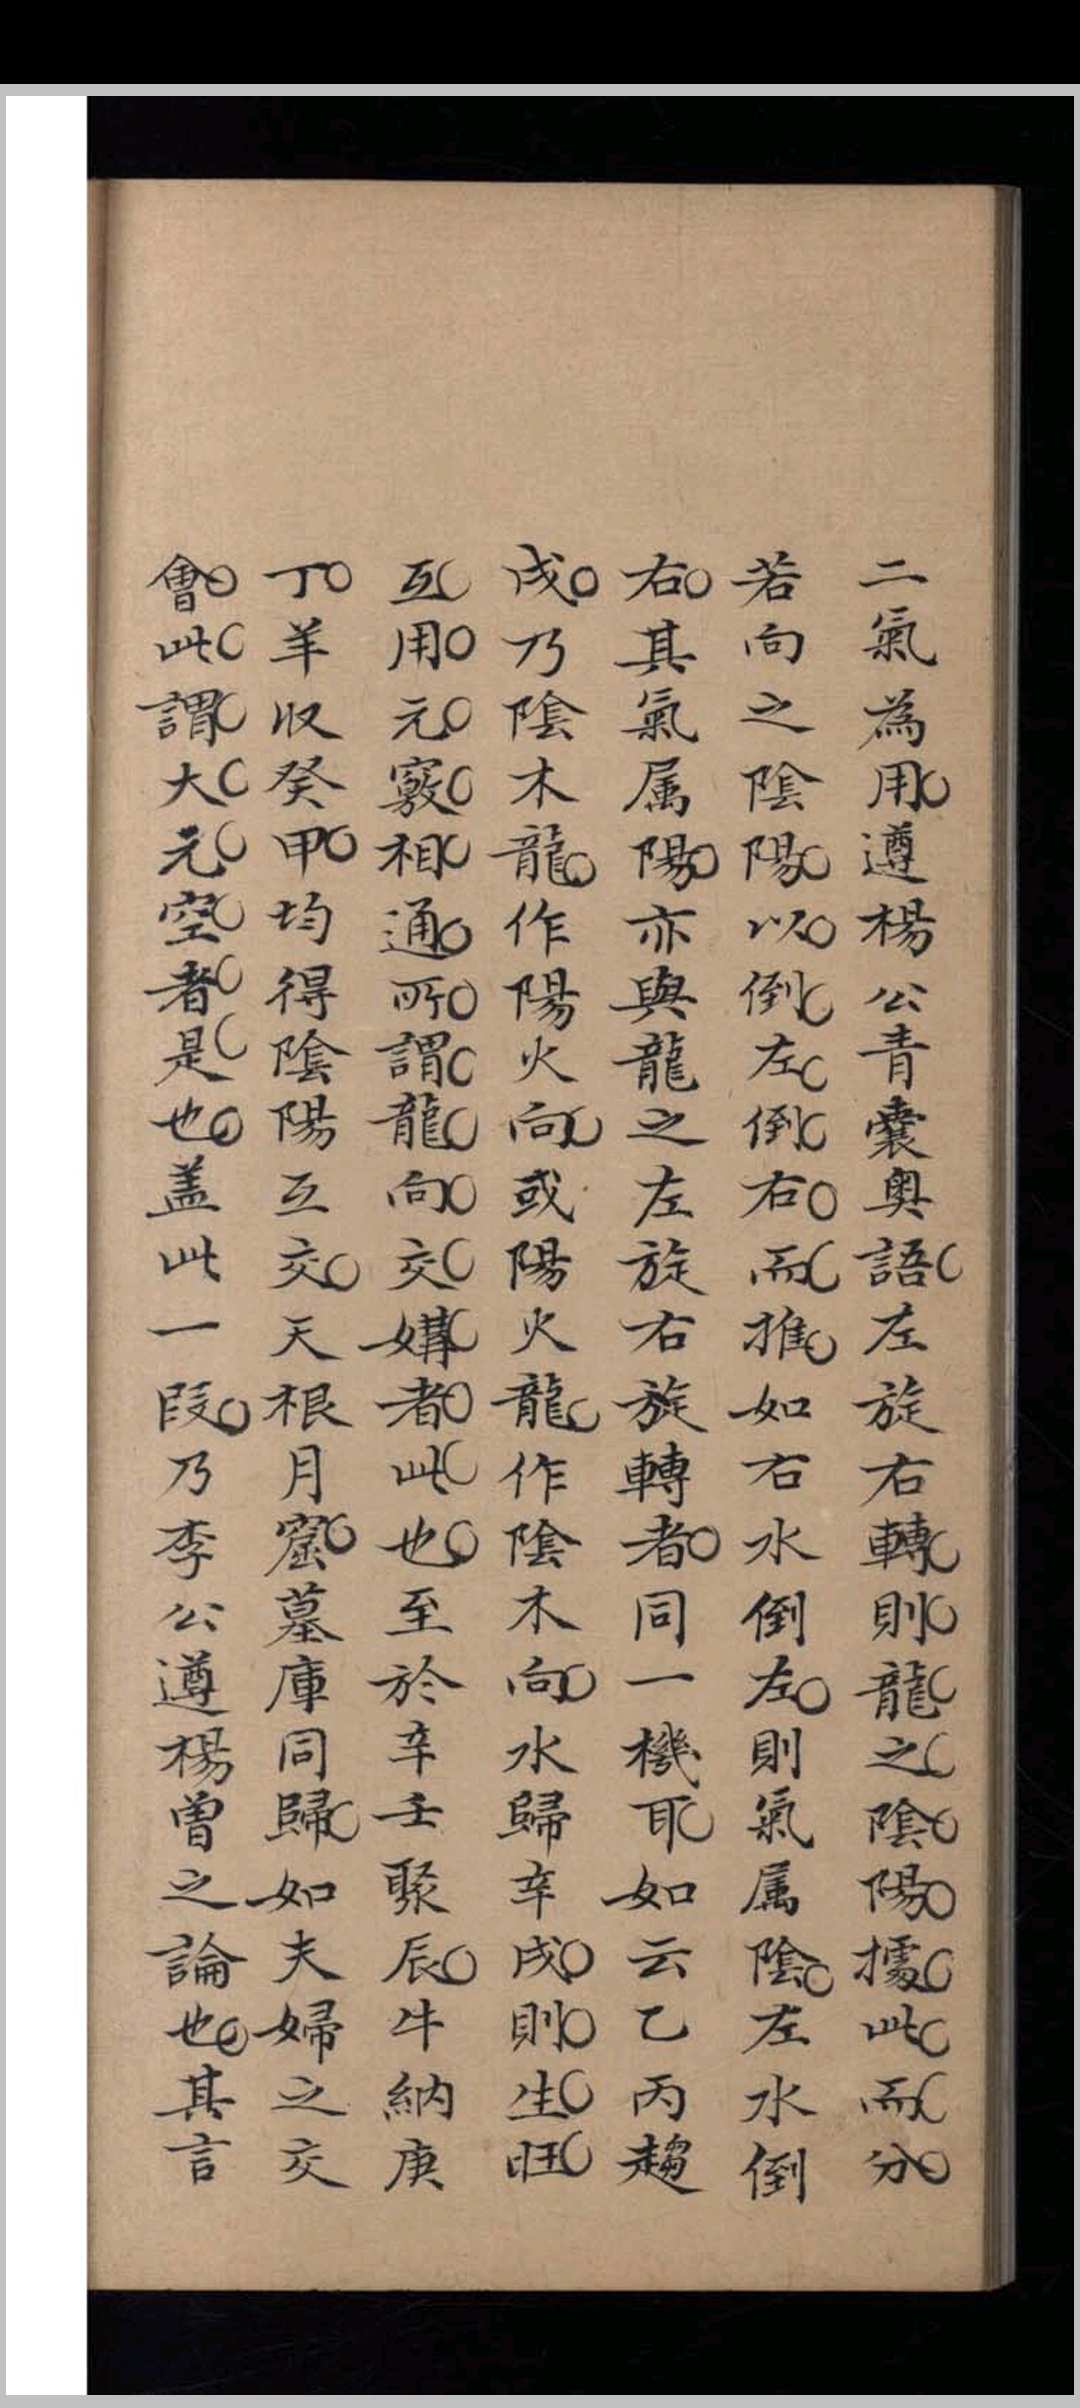 二氣為用遵楊公青囊奧語左旋右轉則龍之陰陽據此而分
若向之陰陽以倒左倒右而推如右水倒左則氣属陰左水倒
右其氣属陽亦與龍之左旋右旋轉者同一機耶如云乙丙趨
戌乃陰木龍作陽火向或陽火龍作陰木向水歸辛戌則生旺
互用元竅相通所謂龍向交媾者此也至於辛壬聚辰牛納庚
丁羊収癸甲均得陰陽互交天根月窟墓庫同歸如夫婦之交
會此謂大元空者是也盖此一段乃李公遵楊曾之論也其言